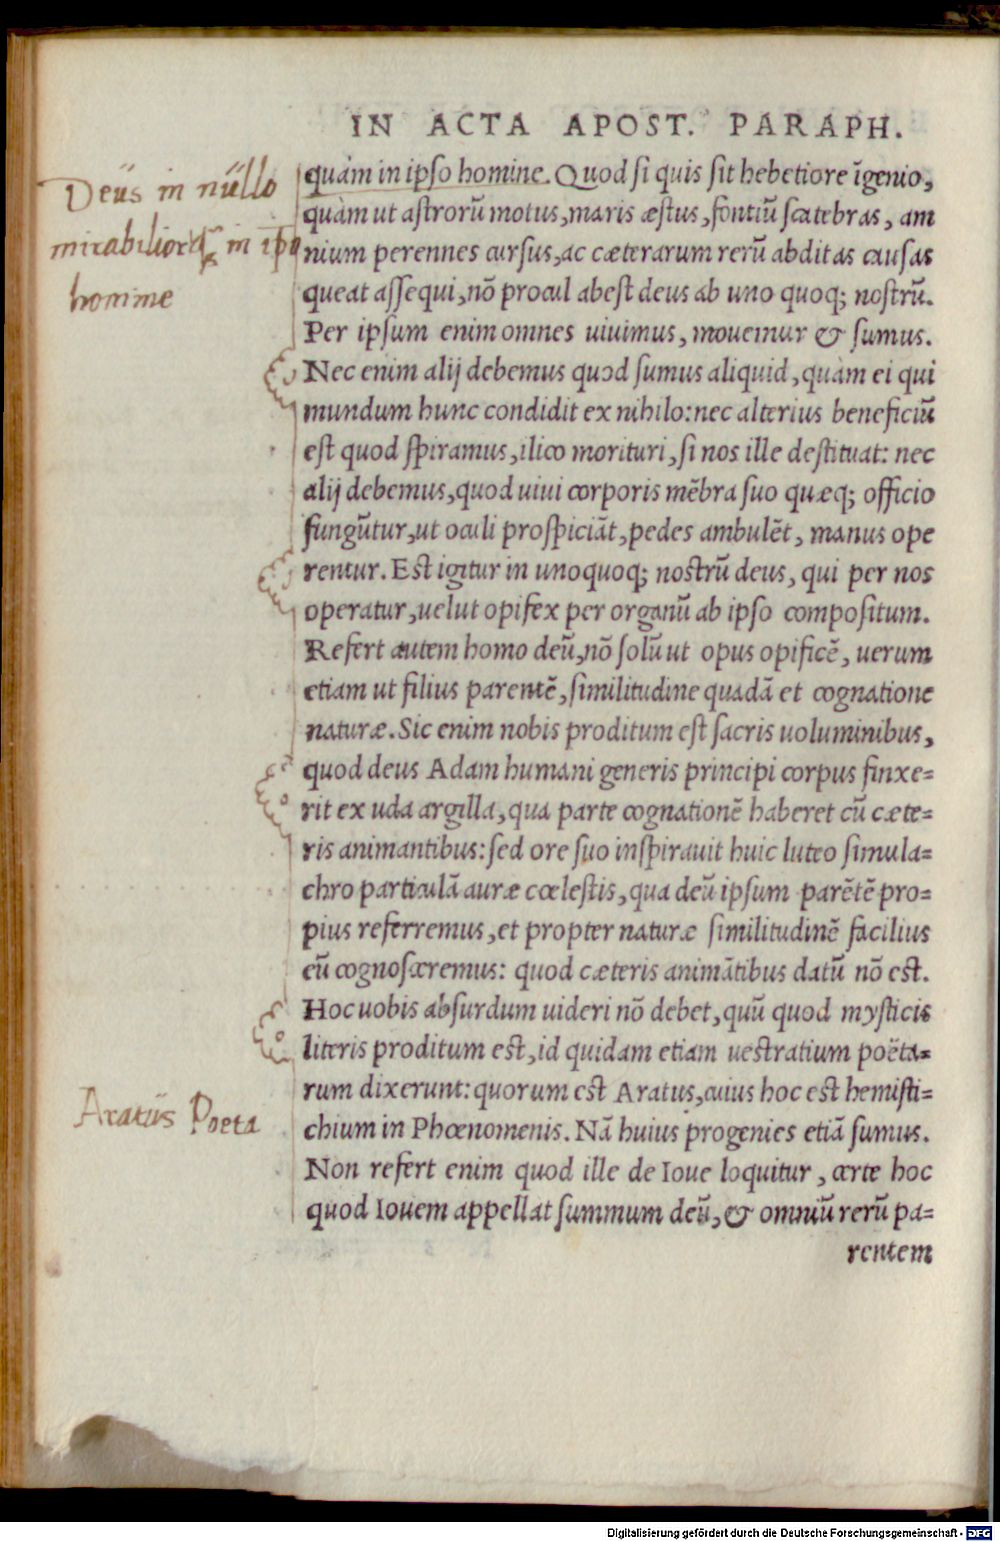 IN ACTA APOST. PARAPH.
Deus in nullo
mirabilior q̃ in ip̃o
homine
quàm in ipso homine. Quod si quis sit hebetiore ĩgenio,
quàm ut astrorũ motus, maris æstus, fontiũ scatebras, am
nium perennes cursus, ac cæterarum rerũ abditas causas
queat assequi, nõ procul abest deus ab uno quoq; nostrũ.
Per ipsum enim omnes uiuimus, mouemur & sumus.
Nec enim alij debemus quod sumus aliquid, quàm ei qui
mundum hunc condidit ex nihilo: nec alterius beneficiũ
est quod spiramus, ilico morituri, si nos ille destituat: nec
alij debemus, quod uiui corporis mẽbra suo quæq; officio
fungũtur, ut oculi prospiciãt, pedes ambulẽt, manus ope
rentur. Est igitur in unoquoq; nostrũ deus, qui per nos
operatur, uelut opifex per organũ ab ipso compositum.
Refert autem homo deũ, nõ solũ ut opus opificẽ, uerum
etiam ut filius parentẽ, similitudine quadã et cognatione
naturæ. Sic enim nobis proditum est sacris uoluminibus,
quod deus Adam humani generis principi corpus finxe=
rit ex uda argilla, qua parte cognationẽ haberet cũ cæte=
ris animantibus: sed ore suo inspirauit huic luteo simula=
chro particulã auræ cœlestis, qua deũ ipsum parẽtẽ pro=
pius referremus, et propter naturæ similitudinẽ facilius
eũ cognosceremus: quod cæteris animãtibus datũ nõ est.
Hoc uobis absurdum uideri nõ debet, quũ quod mysticis
literis proditum est, id quidam etiam uestratium poëta=
rum dixerunt: quorum est Aratus, cuius hoc est hemisti=
chium in Phœnomenis. Nã huius progenies etiã sumus.
Aratus Poeta
Non refert enim quod ille de Ioue loquitur, certe hoc
quod Iouem appellat summum deũ, & omniũ rerũ pa=
rentem
Digitalisierung gefördert durch die Deutsche Forschungsgemeinschaft - DFG